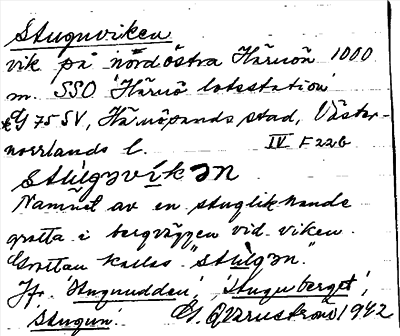 Stuguviken
vik på nordöstra Härnön 1000
m. SSO 'Härnö lotsstation'
G 75 SV, Härnösands stad, Väster-
norrlands l. IV F22b
stùgəvíkən
Namnet av en stugliknande
grotta i bergväggen vid viken.
Grottan kallas "stùgən."
Jfr. 'Stuguudden', 'Stuguberget',
'Stugun'. G. Qvarnström 1942